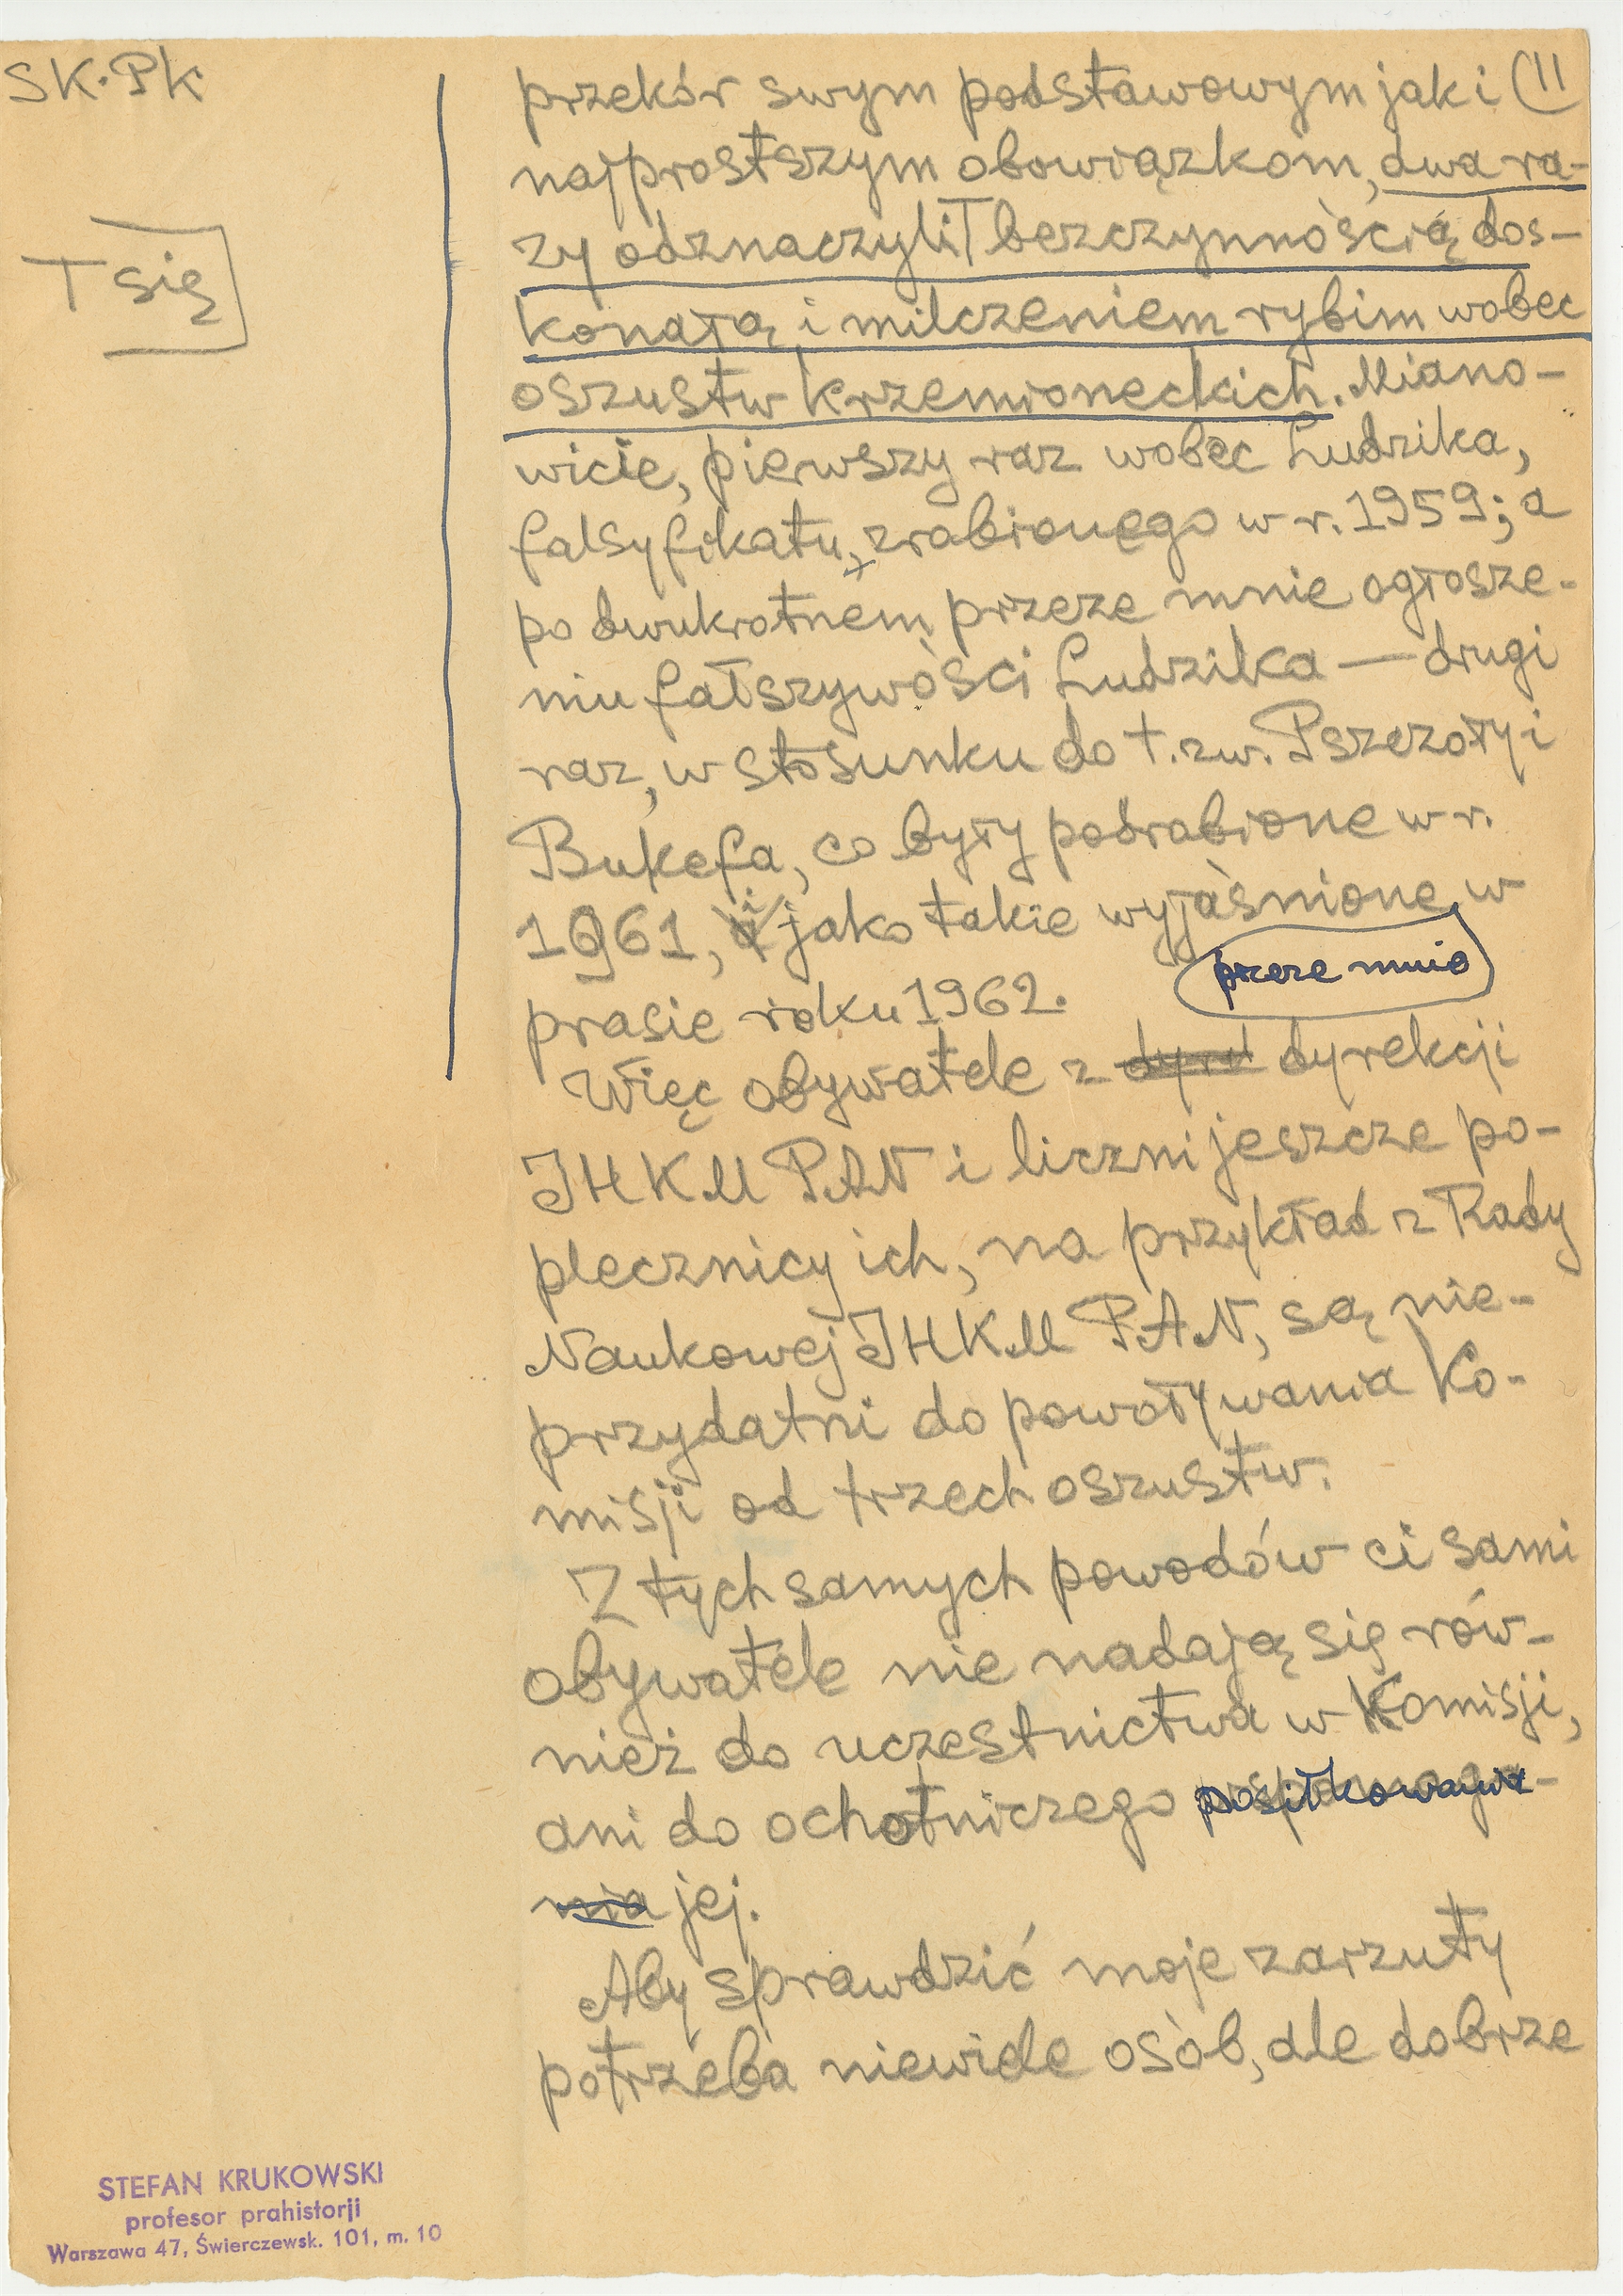 SK. Pk
przekór swym podstawowym jak i (11
najprostszym obowiązkom, dwa ra-
zy odznaczyli T bezczynnością dos-
T się
konałą i milczeniem rybim wobec
oszustw krzemioneckich. Miano-
wicie, pierwszy raz wobec Ludzika,
falsyfikatu, zrobionego w r. 1959; a
po dwukrotnem przeze mnie ogłosze-
niu fałszywości Ludzika — drugi
raz, w stosunku do t. zw. Pszczoły i
Bukefa, co były podrabione w r.
1961, i jako takie wyjaśnione w
przeze mnie
prasie roku 1962.
Więc obywatele z dyrekcji
IHKM PAN i liczni jeszcze po-
plecznicy ich, na przykład z Rady
Naukowej IHKM PAN, są nie-
przydatni do powoływania Ko-
misji od trzech oszustw.
Z tych samych powodów ci sami
obywatele nie nadają się rów-
nież do uczestnictwa w Komisji,
ani do ochotniczego posiłkowania
nia jej.
Aby sprawdzić moje zarzuty
potrzeba niewiele osób, ale dobrze
STEFAN KRUKOWSKI
profesor prahistorji
Warszawa 47, Świerczewsk. 101, m. 10